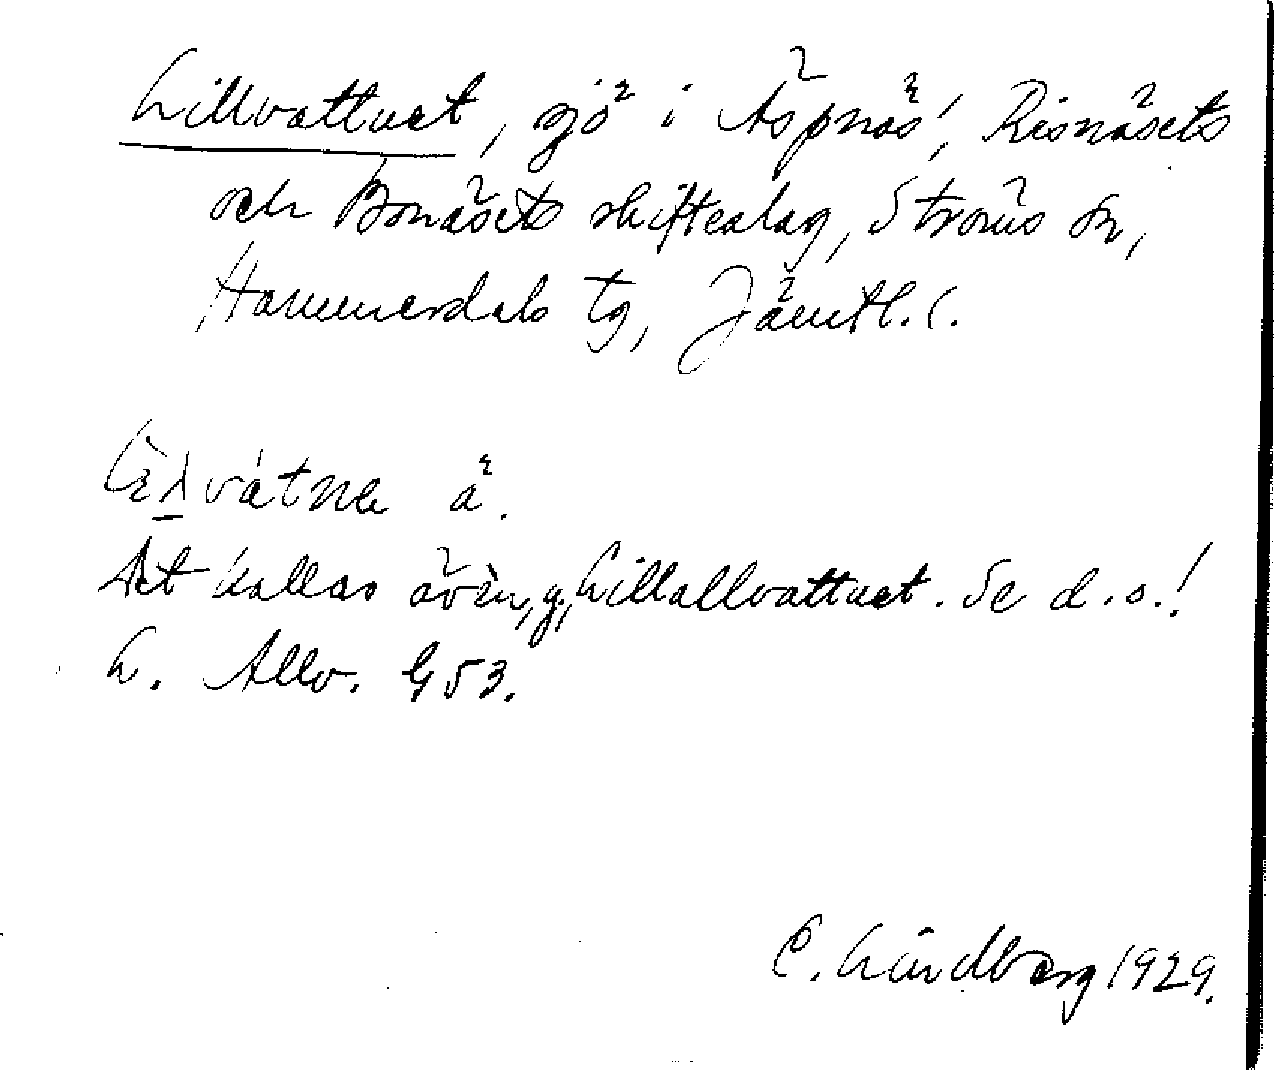 Lillvattnet, sjö i Äspnäs', Risnäsets
och Bonäsets skiftealag, Ströms sn,
Hammerdals tg, Jämtl. l.
vátne ä.
Det kallas även, Lillallvattnet. Se d. o.!
L. Allv. G 53.
C. Lindberg 1929.